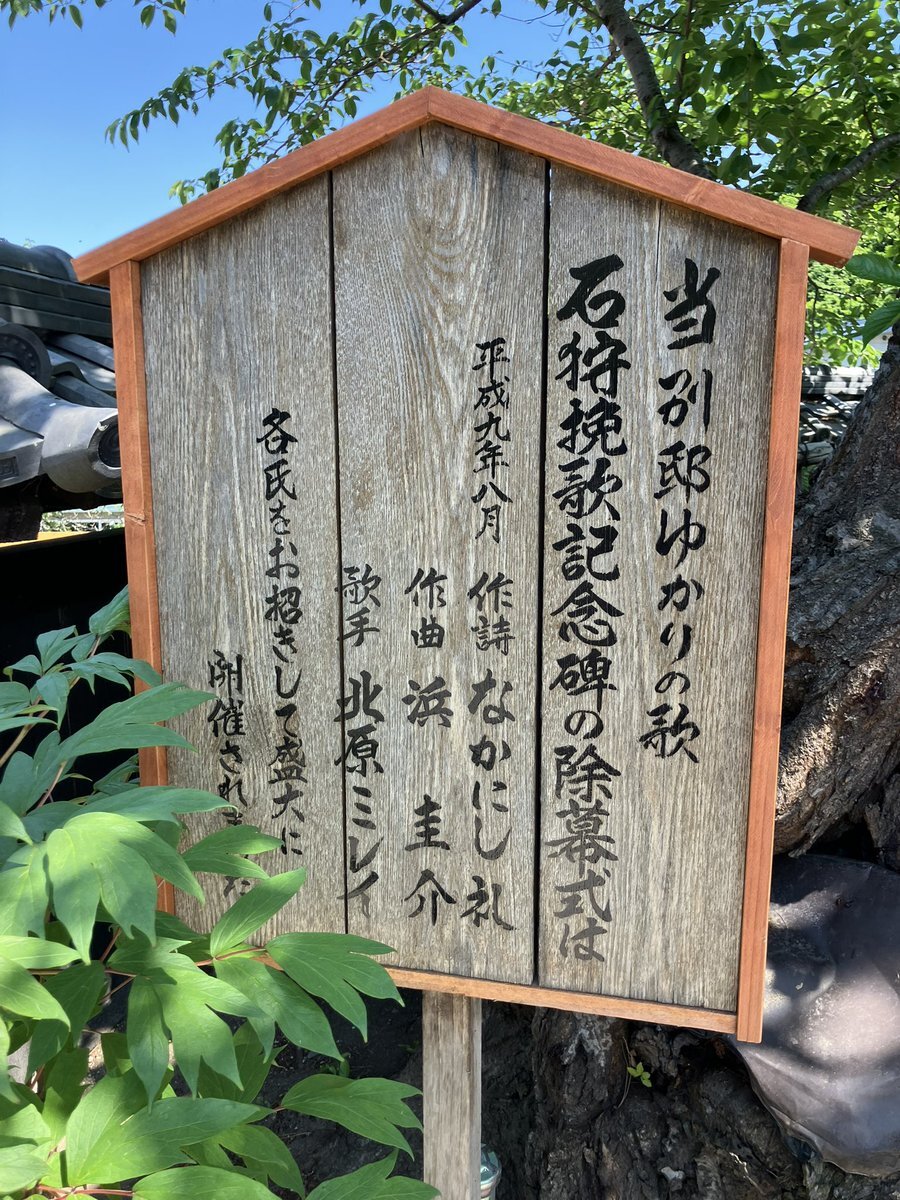 当別邸ゆかりの歌
石狩挽歌記念碑の除幕式は
平成九年八月
作詩 なかにし礼
作曲 浜 圭介
歌手 北原ミレイ
各氏をお招きして盛大に
開催されました